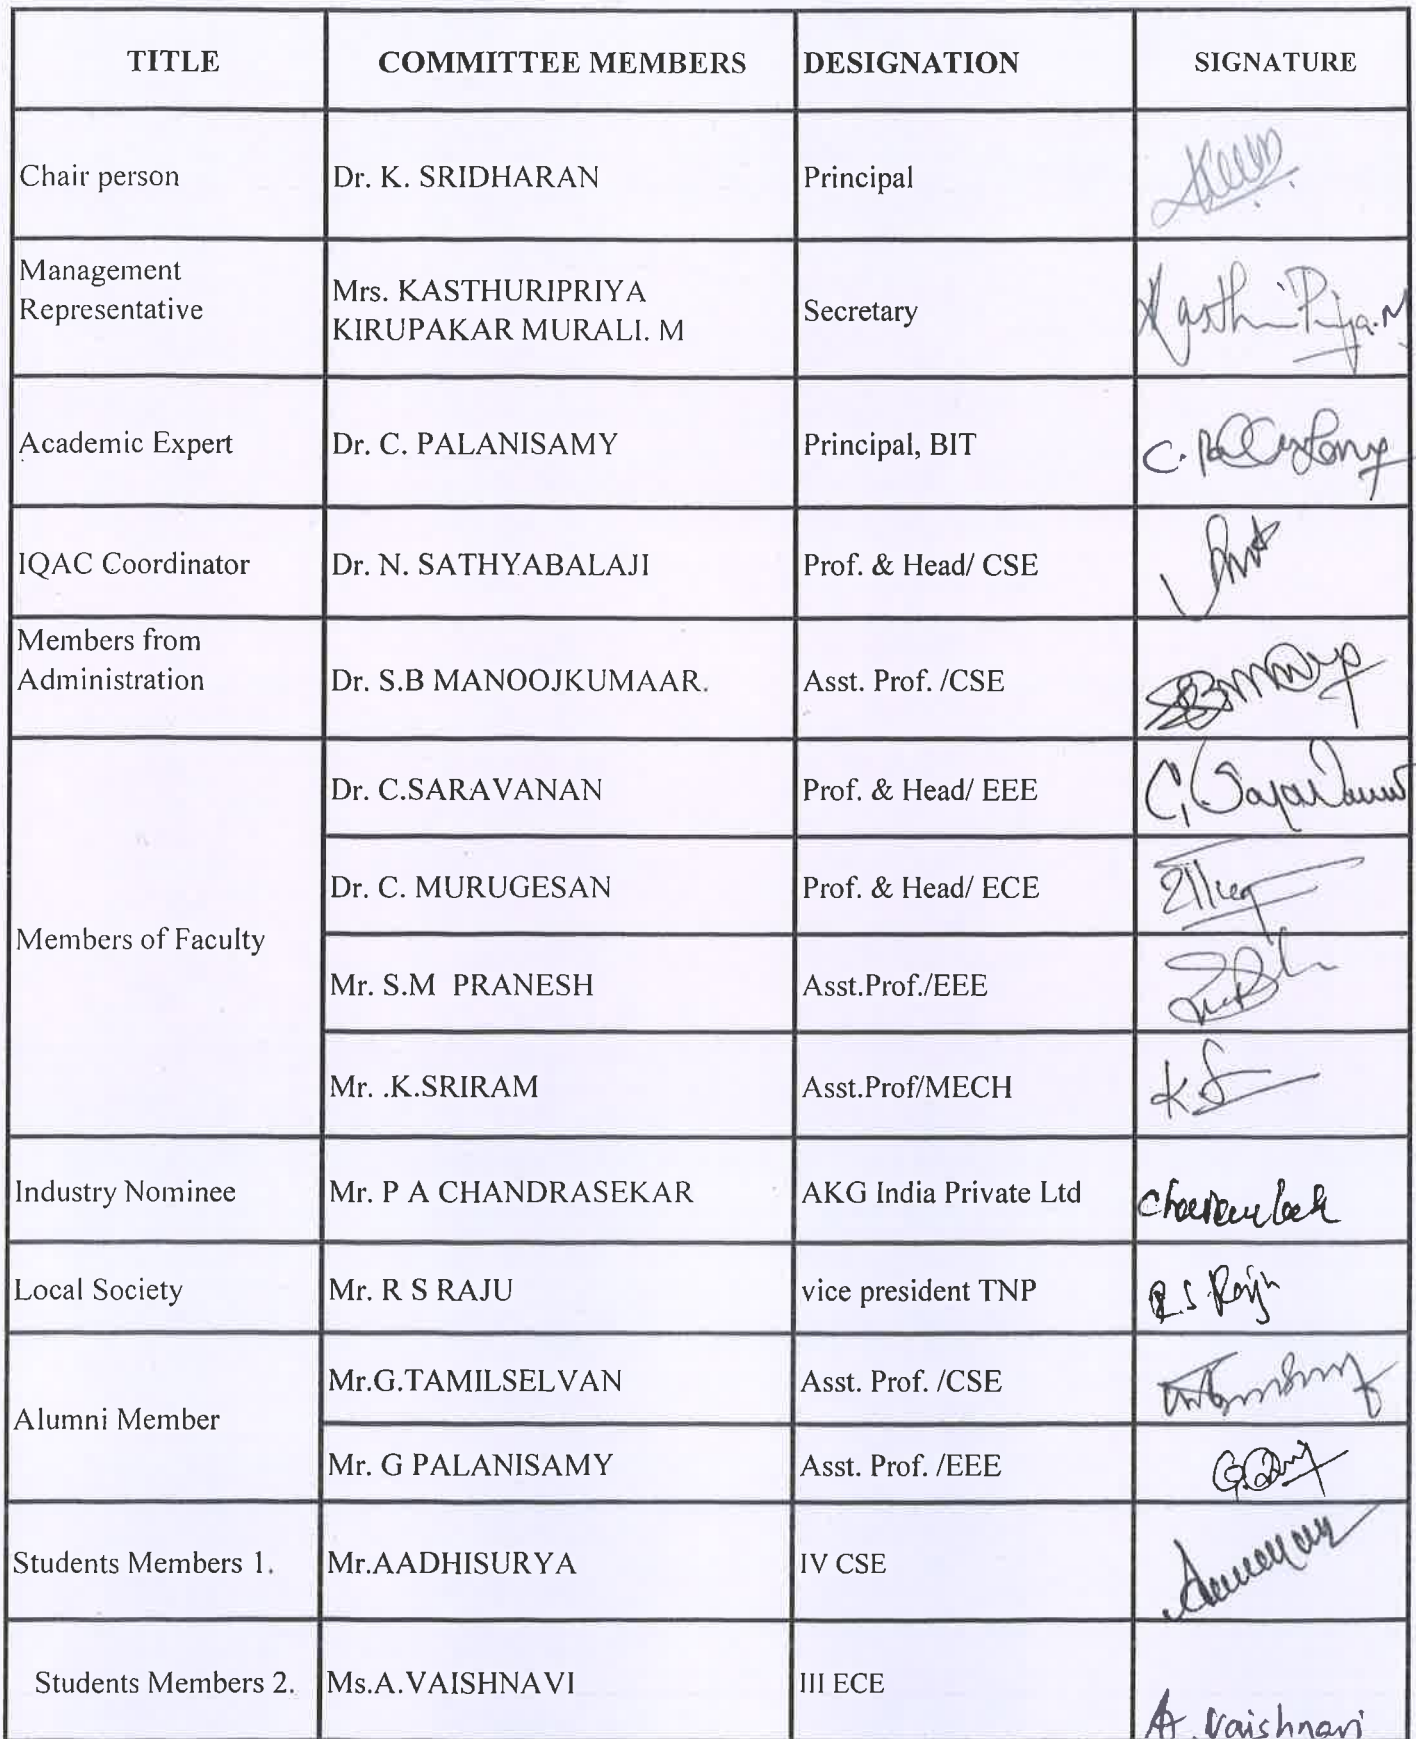 TITLE COMMITTEE MEMBERS DESIGNATION SIGNATURE
Chair person Dr. K. SRIDHARAN Principal
Management
Representative
Mrs. KASTHURIPRIYA
KIRUPAKAR MURALI. M
Secretary
Academic Expert Dr. C. PALANISAMY Principal, BIT
IQAC Coordinator Dr. N. SATHYABALAJI Prof. & Head/ CSE
Members from
Administration
Dr. S.B MANOOJKUMAAR. Asst. Prof. /CSE
Members of Faculty
Dr. C.SARAVANAN Prof. & Head/ EEE
Dr. C. MURUGESAN Prof. & Head/ ECE
Mr. S.M PRANESH Asst.Prof./EEE
Mr. .K.SRIRAM Asst.Prof/MECH
Industry Nominee Mr. P A CHANDRASEKAR AKG India Private Ltd
Local Society Mr. R S RAJU vice president TNP R.S Raju
Alumni Member
Mr.G.TAMILSELVAN Asst. Prof. /CSE
Mr. G PALANISAMY Asst. Prof. /EEE
Students Members 1. Mr.AADHISURYA IV CSE
Students Members 2. Ms.A.VAISHNAVI III ECE A. Vaishnavi